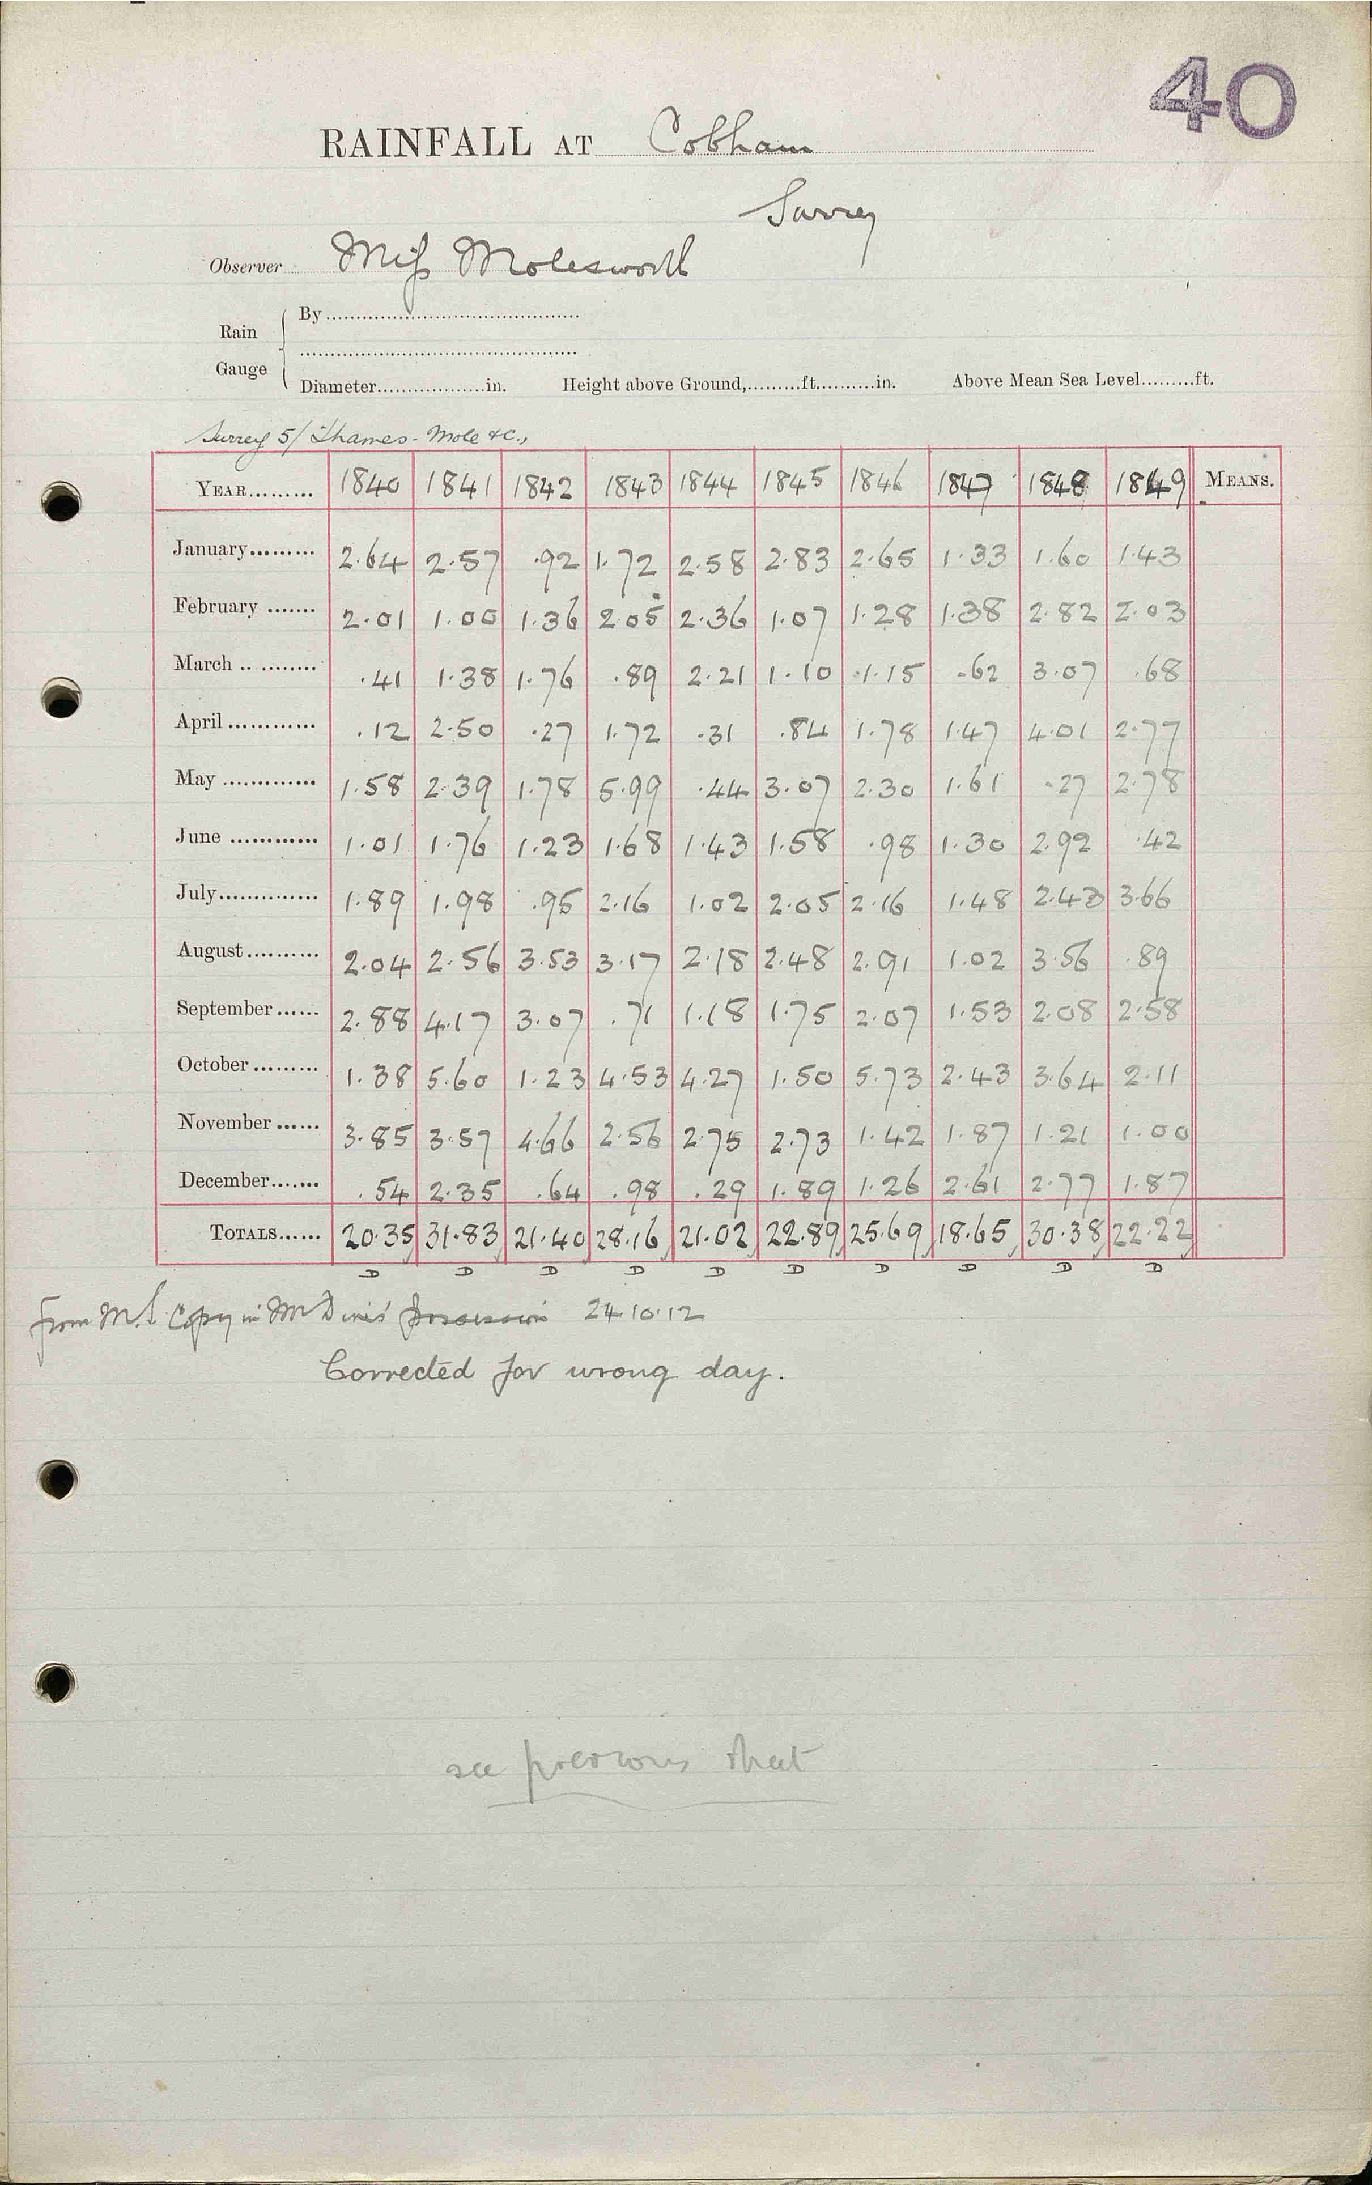 40
RAINFALL AT Cobham
Surrey
Observer Miss Molesworth
Rain Gauge
By
Diameter in. Height above Ground, ft. in. Above Mean Sea Level ft.
Surrey 5/ Thames - Mole &c.,
YEAR 1840 1841 1842 1843 1844 1845 1846 1847 1848 1849 MEANS.
January 2.64 2.57 .92 1.72 2.58 2.83 2.65 1.33 1.60 1.43
February 2.01 1.00 1.36 2.05 2.36 1.07 1.28 1.38 2.82 2.03
March .41 1.38 1.76 .89 2.21 1.10 1.15 .62 3.07 .68
April .12 2.50 .27 1.72 .31 .84 1.78 1.47 4.01 2.77
May 1.58 2.39 1.78 5.99 .44 3.07 2.30 1.61 .27 2.78
June 1.01 1.76 1.23 1.68 1.43 1.58 .98 1.30 2.92 .42
July 1.89 1.98 .95 2.16 1.02 2.05 2.16 1.48 2.43 3.66
August 2.04 2.56 3.53 3.17 2.18 2.48 2.91 1.02 3.56 .89
September 2.88 4.17 3.07 .71 1.18 1.75 2.07 1.53 2.08 2.58
October 1.38 5.60 1.23 4.53 4.27 1.50 5.73 2.43 3.64 2.11
November 3.85 3.57 4.66 2.56 2.75 2.73 1.42 1.87 1.21 1.00
December .54 2.35 .64 .98 .29 1.89 1.26 2.61 2.77 1.87
TOTALS 20.35 31.83 21.40 28.16 21.02 22.89 25.69 18.65 30.38 22.22
D D D D D D D D D D
from M.S. Copy in Mr Dines' possession 24.10.12
Corrected for wrong day.
see previous sheet